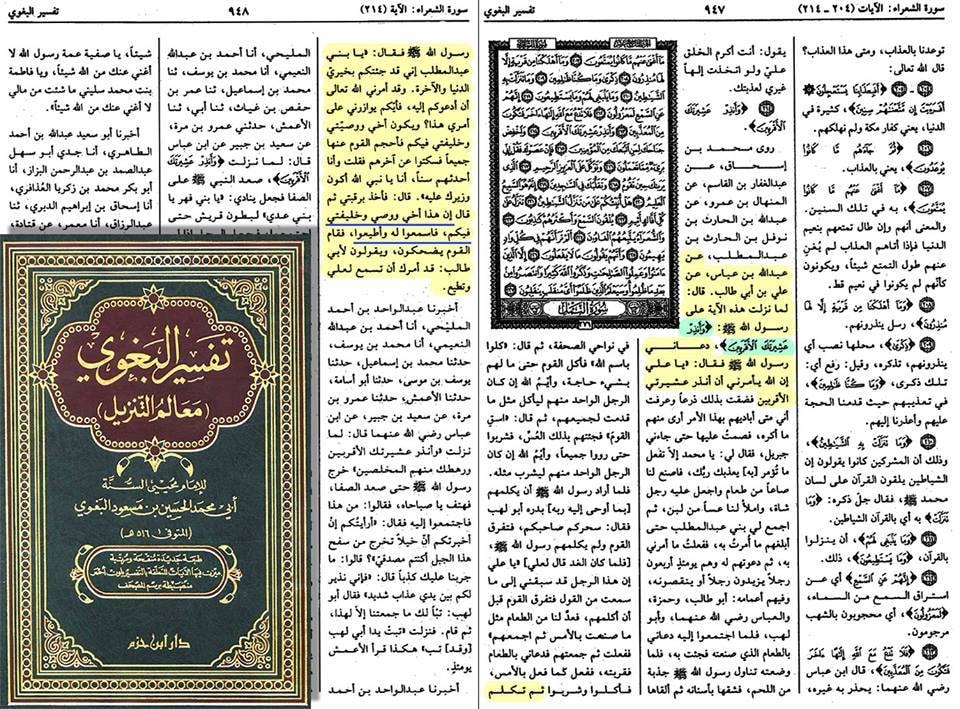 سورة الشعراء: الآيات (٢٠٤ ـ ٢١٤)
٩٤٧
تفسير البغوي
توعدنا بالعذاب، ومتى هذا العذاب؟
قال الله تعالى:
﴿أَفَبِعَذَابِنَا يَسْتَعْجِلُونَ﴾
أَفَرَءَيْتَ إِن مَّتَّعْنَٰهُمْ سِنِينَ﴾، كثيرة في
الدنيا، يعني كفار مكة ولم نهلكهم.
﴿ثُمَّ جَاءَهُم مَّا كَانُوا
يُوعَدُونَ﴾، يعني بالعذاب.
﴿مَا أَغْنَىٰ عَنْهُم مَّا كَانُوا
يُمَتَّعُونَ﴾، به في تلك السنين.
والمعنى أنهم وإن طال تمتعهم بنعيم
الدنيا فإذا أتاهم العذاب لم يُغْنِ
عنهم طول التمتع شيئاً، ويكونون
كأنهم لم يكونوا في نعيم قط.
﴿وَمَا أَهْلَكْنَا مِن قَرْيَةٍ إِلَّا لَهَا
مُنذِرُونَ﴾، رسل ينذرونهم.
﴿ذِكْرَىٰ﴾، محلها نصب أي
ينذرونهم، تذكره، وقيل: رفع أي:
تلك ذكرى، ﴿وَمَا كُنَّا ظَالِمِينَ﴾،
في تعذيبهم حيث قدمنا الحجة
عليهم وأعذرنا إليهم.
﴿وَمَا تَنَزَّلَتْ بِهِ الشَّيَٰطِينُ﴾،
وذلك أن المشركين كانوا يقولون إن
الشياطين يلقون القرآن على لسان
محمد ﷺ، فقال جلّ ذكره: ﴿وَمَا
تَنَزَّلَتْ﴾ به أي بالقرآن الشياطين.
﴿وَمَا يَنبَغِي لَهُمْ﴾، أن ينزلوا
بالقرآن، ﴿وَمَا يَسْتَطِيعُونَ﴾، ذلك.
﴿إِنَّهُمْ عَنِ السَّمْعِ﴾ أي عن
استراق السمع من السماء،
﴿لَمَعْزُولُونَ﴾، أي محجوبون بالشهب
مرجومون.
﴿فَلَا تَدْعُ مَعَ اللَّهِ إِلَٰهًا ءَاخَرَ
فَتَكُونَ مِنَ الْمُعَذَّبِينَ﴾، قال ابن عباس
رضي الله عنهما: يحذر به غيره،
يقول: أنت أكرم الخلق
عليّ ولو اتخذت إلهاً
غيري لعذبتك.
﴿وَأَنذِرْ عَشِيرَتَكَ
الْأَقْرَبِينَ﴾.
روى محمد بن
إسحاق، عن
عبدالغفار بن القاسم، عن
المنهال بن عمرو، عن
عبد الله بن الحارث بن
نوفل بن الحارث بن
عبدالمطلب، عن
عبدالله بن عباس، عن
علي بن أبي طالب. قال:
لما نزلت هذه الآية على
رسول الله ﷺ: ﴿وَأَنذِرْ
عَشِيرَتَكَ الْأَقْرَبِينَ﴾، دعاني
رسول الله ﷺ فقال: «يا علي
إن الله يأمرني أن أنذر عشيرتي
الأقربين فضقت بذلك ذرعاً وعرفت
أني متى أباديهم بهذا الأمر أرى منهم
ما أكره، فصمتُّ عليها حتى جاءني
جبريل، فقال لي: يا محمد إلاَّ تفعل
ما تُؤمر [به] يعذبك ربُّك، فاصنع لنا
صاعاً من طعام واجعل عليه رجل
شاة، واملأ لنا عساً من لبن، ثم
اجمع لي بني عبدالمطلب حتى
أبلغهم ما أُمرتُ به، ففعلتُ ما أمرني
به، ثم دعوتهم له وهم يومئذٍ أربعون
رجلاً يزيدون رجلاً أو ينقصونه،
وفيهم أعمامه: أبو طالب، وحمزة،
والعباس رضي الله عنهما، وأبو
لهب، فلما اجتمعوا إليه دعاني
بالطعام الذي صنعته فجئت به، فلما
وضعته تناول رسول الله ﷺ جذبة
من اللحم، فشقها بأسنانه ثم ألقاها
سُورَةُ النَّمْلِ
في نواحي الصحفة، ثم قال: «كلوا
باسم الله» فأكل القوم حتى ما لهم
بشيء حاجة، وأيْمُ الله إن كان
الرجل الواحد منهم ليأكل مثل ما
قدمت لجميعهم، ثم قال: «اسق
القومَ» فجئتهم بذلك العُسِّ، فشربوا
حتى رووا جميعاً، وأيْمُ الله إن كان
الرجل الواحد منهم ليشرب مثله.
فلما أراد رسول الله ﷺ أن يكلمهم
[بما أوحى إليه ربه] بدره أبو لهب
فقال: سحركم صاحبكم، فتفرق
القوم ولم يكلمهم رسول الله ﷺ،
[فلما كان الغد قال لعلي] «يا علي
إن هذا الرجل قد سبقني إلى ما
سمعت من القول فتفرق القوم قبل
أن أكلمهم، فعدّ لنا من الطعام مثل
ما صنعت بالأمس ثم اجمعهم»
ففعلت ثم جمعتهم فدعاني بالطعام
فقربته، ففعل كما فعل بالأمس،
فأكلوا وشربوا ثم تكلم
سورة الشعراء: الآية (٢١٤)
٩٤٨
تفسير البغوي
رسول الله ﷺ فقال: «يا بني
عبدالمطلب إني قد جئتكم بخيريْ
الدنيا والآخرة. وقد أمرني الله تعالى
أن أدعوكم إليه، فأيُّكم يوازرني على
أمري هذا؟ ويكون أخي ووصيّتي
وخليفتي فيكم فأحجم القوم عنها
جميعاً فسكتوا عن آخرهم فقلت وأنا
أحدثهم سناً، أنا يا نبي الله أكون
وزيرك عليه». قال: فأخذ برقبتي ثم
قال إن هذا أخي ووصي وخليفتي
فيكم، فاسمعوا له وأطيعوا، فقام
القوم يضحكون، ويقولون لأبي
طالب: قد أمرك أن تسمع لعلي
وتطيع.
أخبرنا عبدالواحد بن أحمد
المليْحي، أنا أحمد بن عبدالله
النعيمي، أنا محمد بن يوسف،
حدثنا محمد بن إسماعيل، حدثنا
يوسف بن موسى، حدثنا أبو أسامة،
حدثنا الأعمش، حدثنا عمرو بن
مرة، عن سعيد بن جبير، عن ابن
عباس رضي الله عنهما قال: لما
نزلت «وأنذر عشيرتك الأقربين
ورهطك منهم المخلصين» خرج
رسول الله ﷺ حتى صعد الصفا،
فهتف يا صباحاه، فقالوا: من هذا
فاجتمعوا إليه فقال: «أرأيتُكم إنْ
أخبرتكم أنّ خيلاً تخرج من سفح
هذا الجبل أكنتم مصدقيّ؟ قالوا: ما
جربنا عليك كذباً قال: «فإني نذير
لكم بين يدي عذاب شديد» فقال أبو
لهب: تبّاً لك ما جمعتنا إلاَّ لهذا،
ثم قام. فنزلت «تبتْ يدا أبي لهب
و[قد] تب» هكذا قرأ الأعمش
يومئذٍ.
أخبرنا عبدالواحد بن أحمد
المليحي، أنا أحمد بن عبدالله
النعيمي، أنا محمد بن يوسف، ثنا
محمد بن إسماعيل، ثنا عمر بن
حفص بن غياث، ثنا أبي، ثنا
الأعمش، حدثني عمرو بن مرة،
عن سعيد بن جبير عن ابن عباس
قال: لما نزلت ﴿وَأَنذِرْ عَشِيرَتَكَ
الْأَقْرَبِينَ﴾، صعد النبي ﷺ على
الصفا فجعل ينادي: «يا بني فهر يا
بني عدي» لبطون قريش حتى
شيئاً، يا صفية عمة رسول الله لا
أغني عنك من الله شيئاً، ويا فاطمة
بنت محمد سليني ما شئت من مالي
لا أغني عنك من الله شيئاً».
أخبرنا أبو سعيد عبدالله بن أحمد
الطاهري، أنا جدي أبو سهل
عبدالصمد بن عبدالرحمن البزاز، أنا
أبو بكر محمد بن زكريا العُذافري،
أنا إسحاق بن إبراهيم الدبري، ثنا
عبدالرزاق، أنا معمر، عن قتادة،
تفسير البغوي
(معالم التنزيل)
للإمام محيي السنة
أبي محمد الحسين بن مسعود البغوي
(المتوفى ٥١٦هـ)
طبعة جديدة منقحة ومرتبة
دار ابن حزم